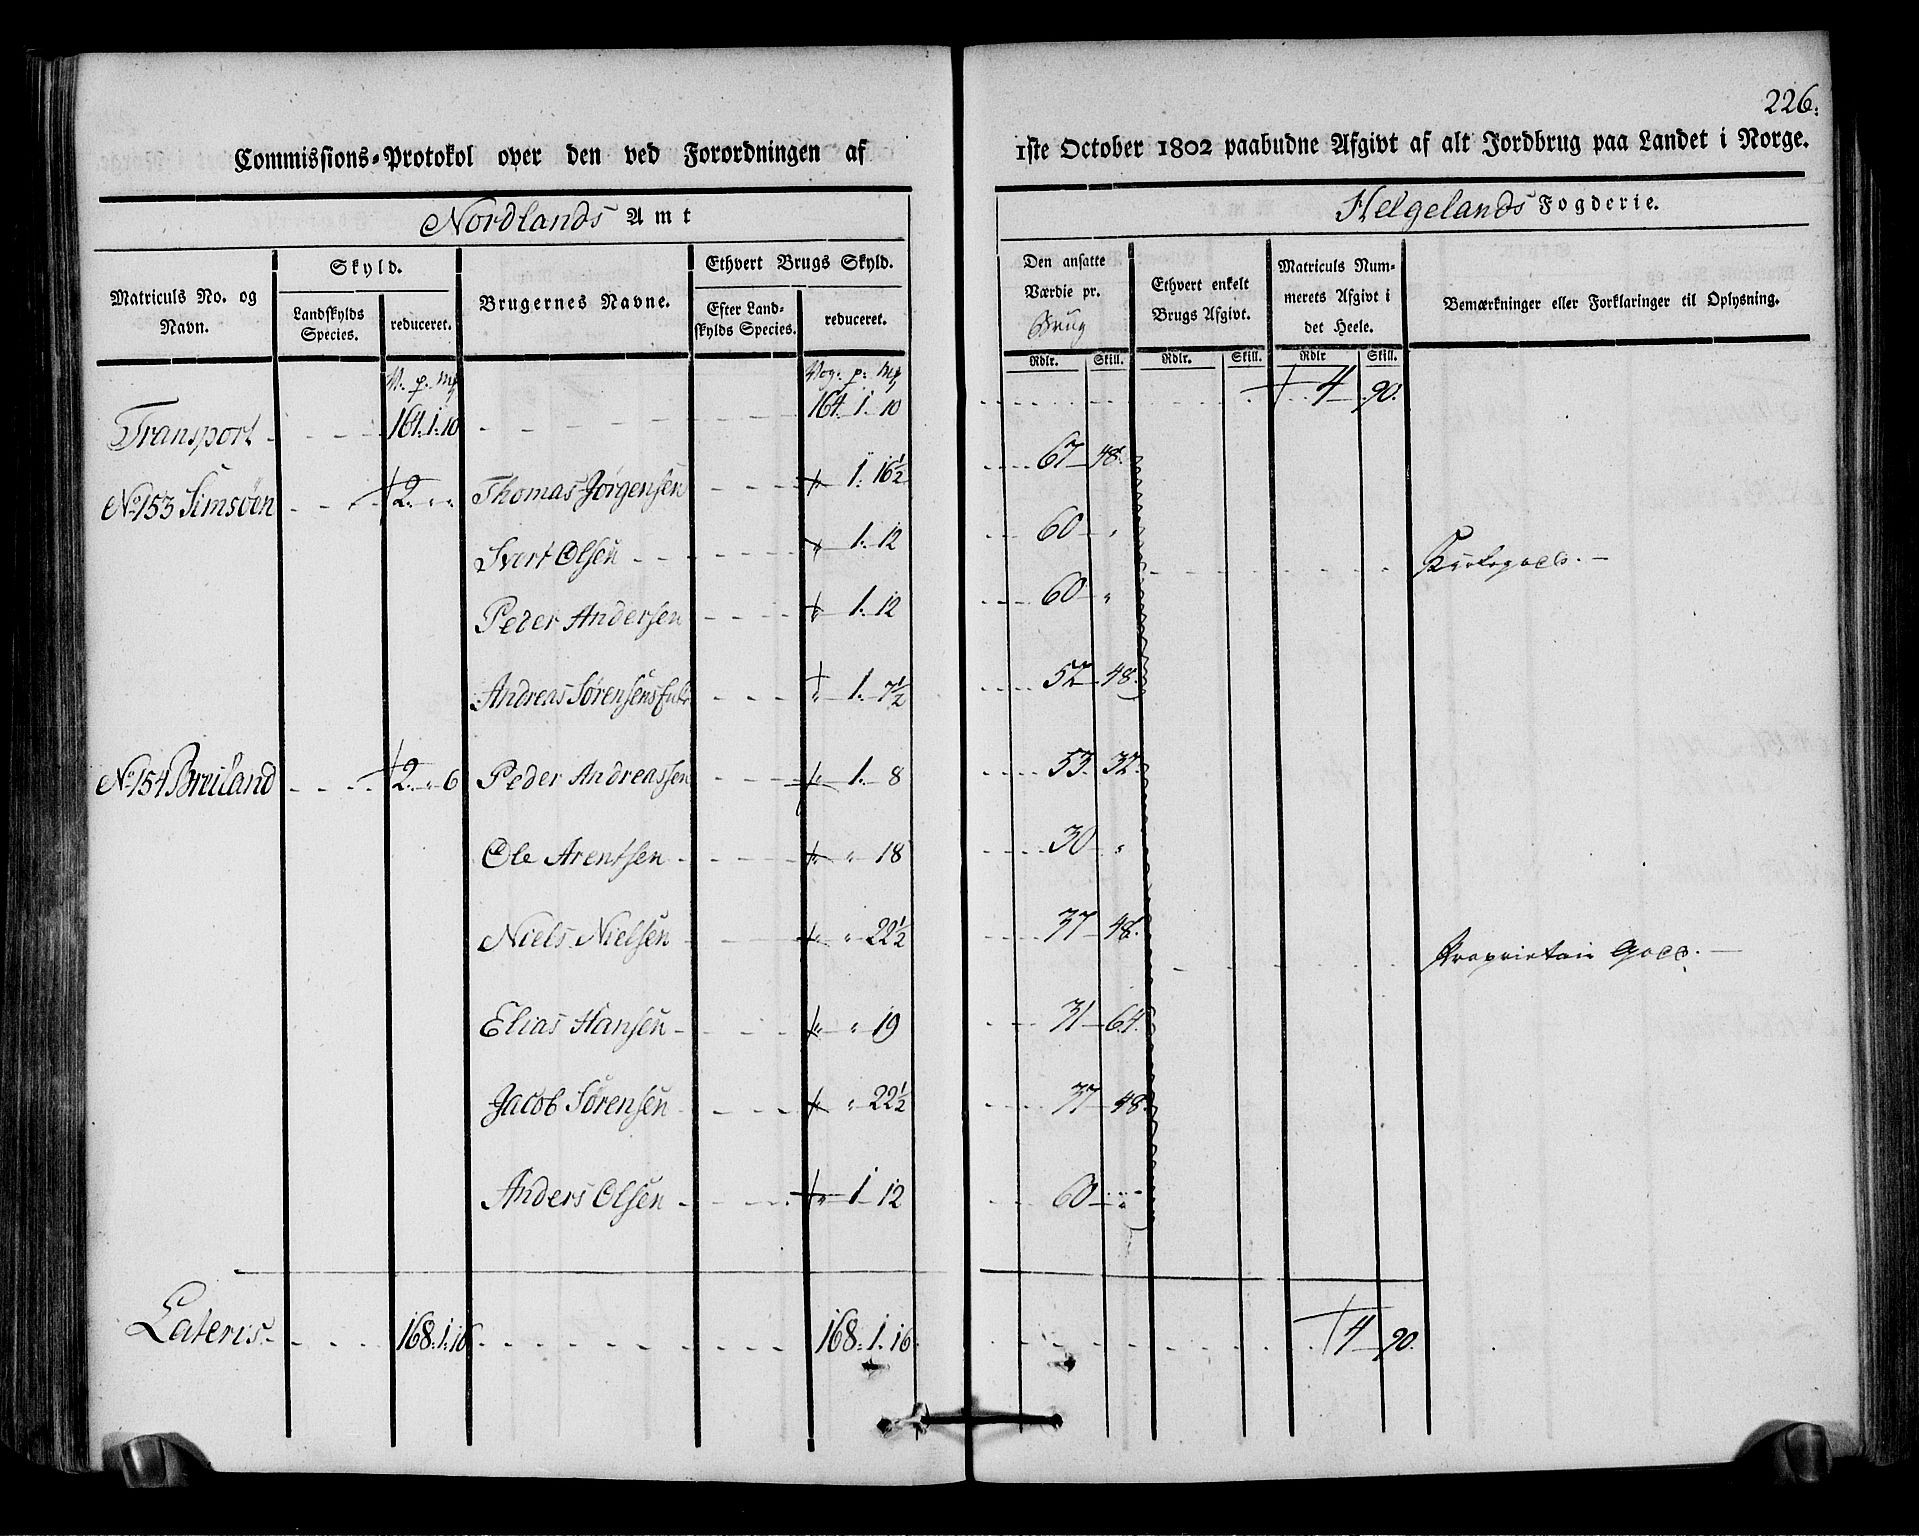 226.
Commissions-Protokol over den ved Forordningen af 1ste October 1802 paabudne Afgivt af alt Jordbrug paa Landet i Norge.
Nordlands Amt Helgelands Fogderie.
Matriculs No. og Navn. Skyld. Landskylds Species. reduceret. Brugernes Navne. Ethvert Brugs Skyld. Efter Landskylds Species. reduceret. Den ansatte Værdie pr. Brug Ethvert enkelt Brugs Afgivt. Matriculs Nummerets Afgivt i det Heele. Bemærkninger eller Forklaringer til Oplysning.
V. p. Mk Vog. p. Mk Rdlr. Skill. Rdlr. Skill. Rdlr Skill.
Transport 164. 1. 10 164. 1. 10 4 90.
No 153 Simsöen 2. " " Thomas Jörgensen " 1. 16½ 67 48.
Ivert Olsen " 1. 12 60 "
Peder Andersen " 1. 12 60 "
Andreas Sörensens " 1. 7½ 52 48.
No 154 Breiland 2. " 6 Peder Andreassen " 1. 8 53. 32.
Ole Arentsen " " 18 30 "
Niels Nielsen " " 22½ 37 48. Proprietair Gods.
Elias Hansen " " 19 31 64.
Jacob Sörensen " " 22½ 37 48.
Anders Olsen " 1 12 60 "
Lateris 168. 1. 16 168. 1. 16 4 90.